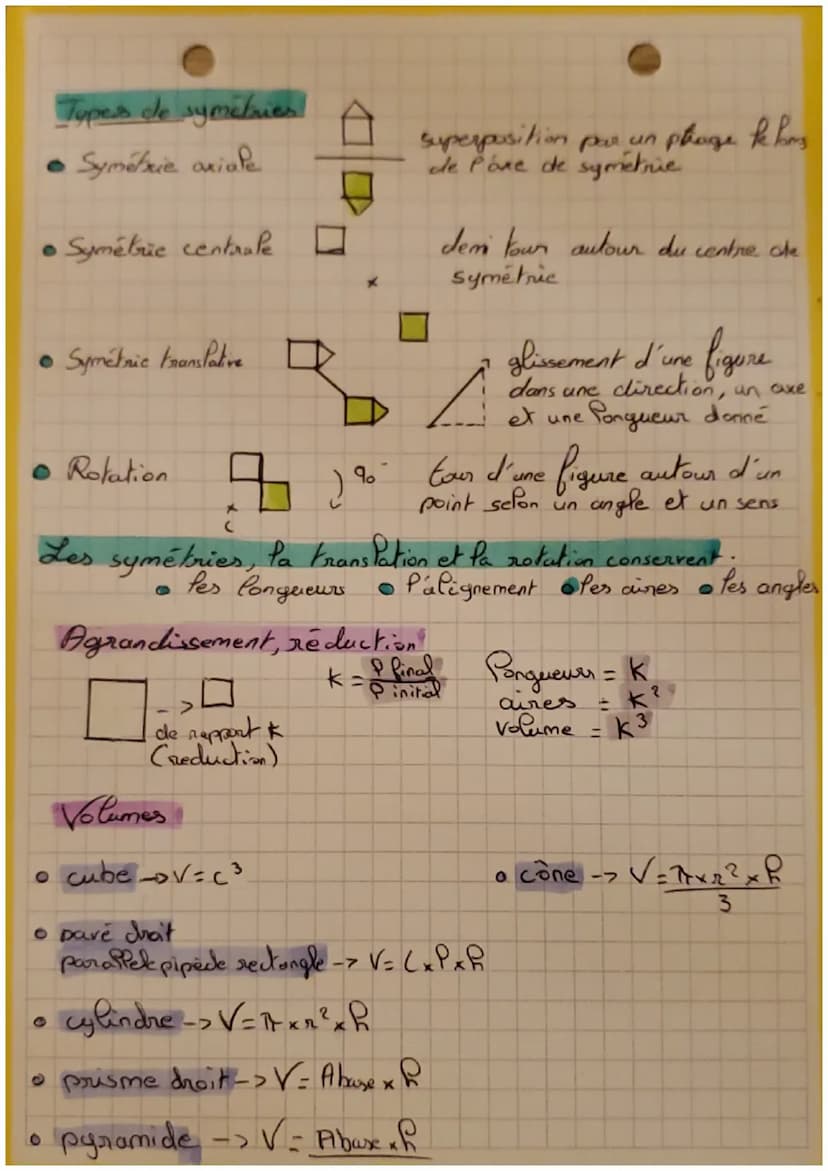 Types de symétries
• Symétrie axiale
superposition par un pliage le long
de l'axe de symétrie
• Symétrie centrale
demi tour autour du centre de
symétrie
• Symétrie translative
glissement d'une figure
dans une direction, un axe
et une longueur donné
• Rotation
90°
tour d'une figure autour d'un
point selon un angle et un sens
c
Les symétries, la translation et la rotation conservent.
• les longueurs • l'alignement • les aires • les angles
Agrandissement, réduction
k = l final / l initial
longueurs = k
aires = k²
volume = k³
->
de rapport k
(reduction)
Volumes
• cube -> V = c³
• cône -> V = π x r² x h / 3
• pavé droit
parallélepipède rectangle -> V = L x l x h
• cylindre -> V = π x r² x h
• prisme droit -> V = Abase x h
• pyramide -> V = Abase x h